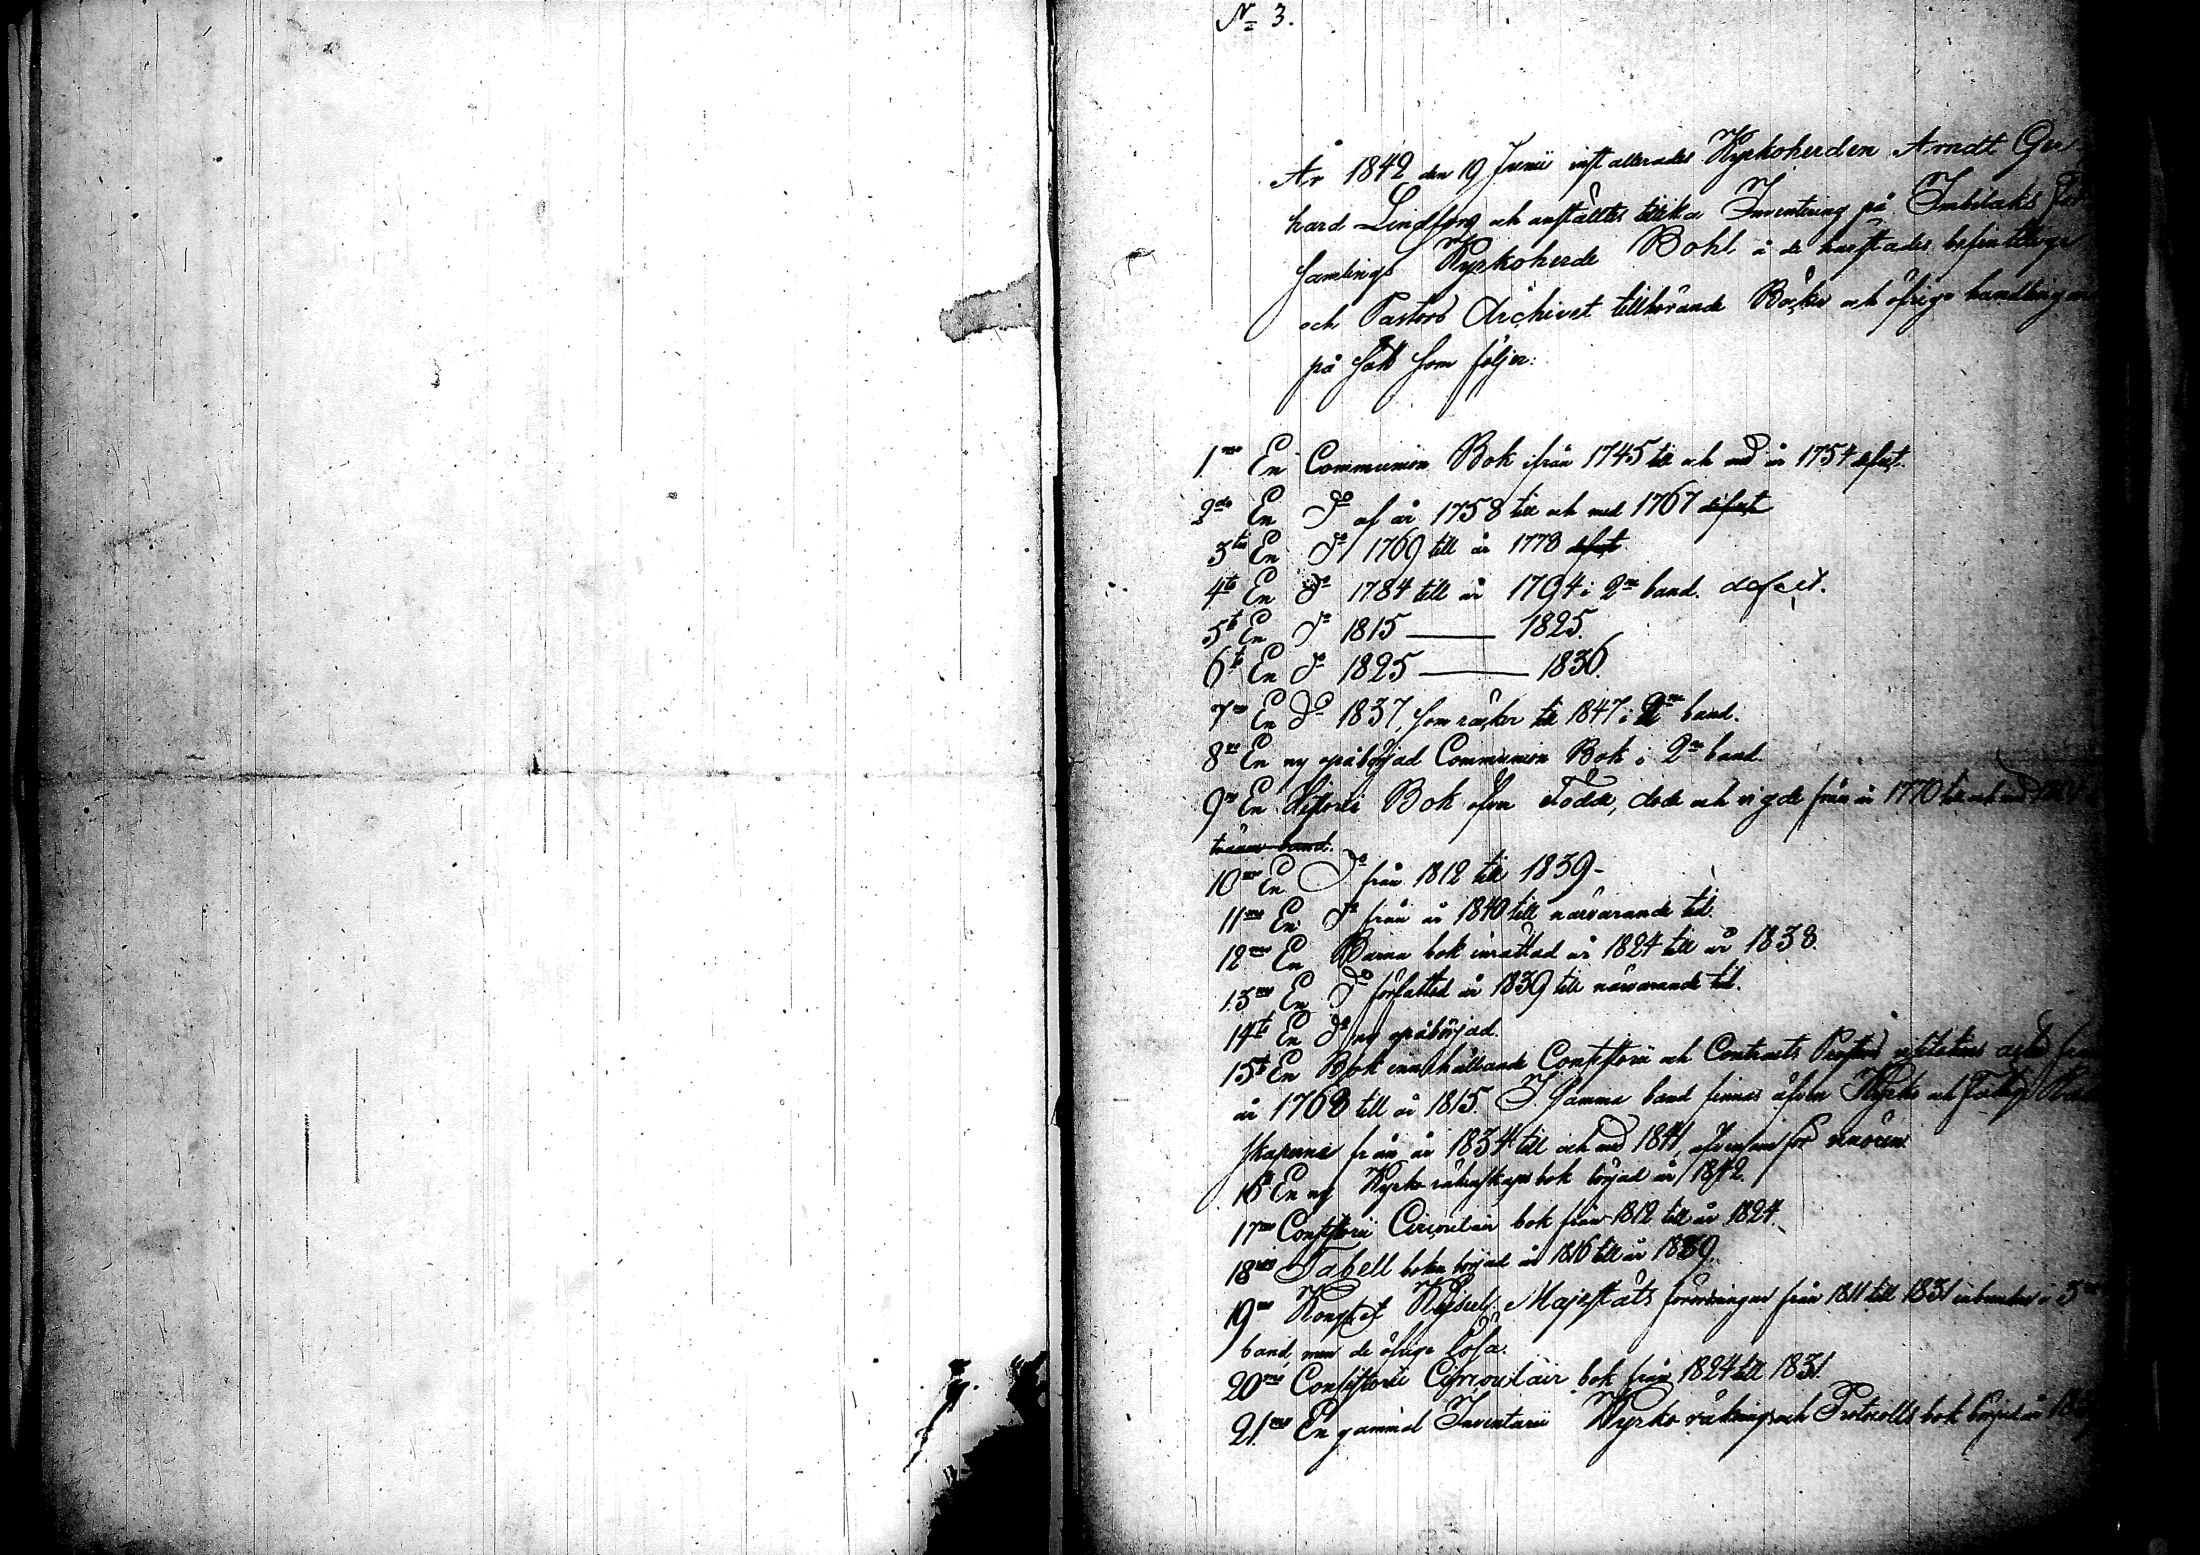 No 3.
År 1842 den 19 Junii installerades Kyrkoherden Arndt Ger
hard Lindfors och anställtes tillika Inventering på Imbilaks För
samlings Kyrkoherde Bohl å de härstädes befintelige
och Pastors Archivet tillhörande Böcker och öfrige handlingar
på sätt som följer.
1mo En Communion Bok ifrån 1745 till och med år 1754 defect.
2do En Do af år 1758 till och med 1767 defect
3tio En Do 1769 till år 1778 defect.
4to En Do 1784 till år 1794 i 2ne band. defect.
5to En Do 1815 — 1825.
6to En Do 1825 — 1836.
7mo En Do 1837, som räcker till 1847 i 2ne band.
8vo En ny opåbörjad Communion Bok i 2ne band.
9no En Historie Bok öfver Födde, döde och vigde från år 1770 till och med
tvänne band.
10mo En Do från 1812 till 1839-
11mo En Do från år 1840 till närvarande tid.
12mo En Barna bok inrättad år 1824 till år 1838.
13mo En Do författad år 1839 till närvarande tid.
14to En Do ny opåbörjad.
15to En Bok innehållande Consistorii och Contracts Prostens visitations acter från
år 1768 till år 1815. I samma band finnas äfven Kyrko och Fattig Räken
skaperne från år 1834 till och med 1841, äfvensom för
16to En ny Kyrko räkenskaps bok börjad år 1842.
17mo Consistorii Circulair bok från 1812 till år 1824.
18vo Tabell boken börjad år 1816 till år 1839.
19no Hans Kejserl. Majestäts förordningar från 1811 till 1831 inbundne i 3ne
band, men de öfrige lösa.
20mo Consistorii Circulair bok från 1824 till 1831.
21mo En gammal Inventarii Kyrko räknings och Protocolls bok börjad år